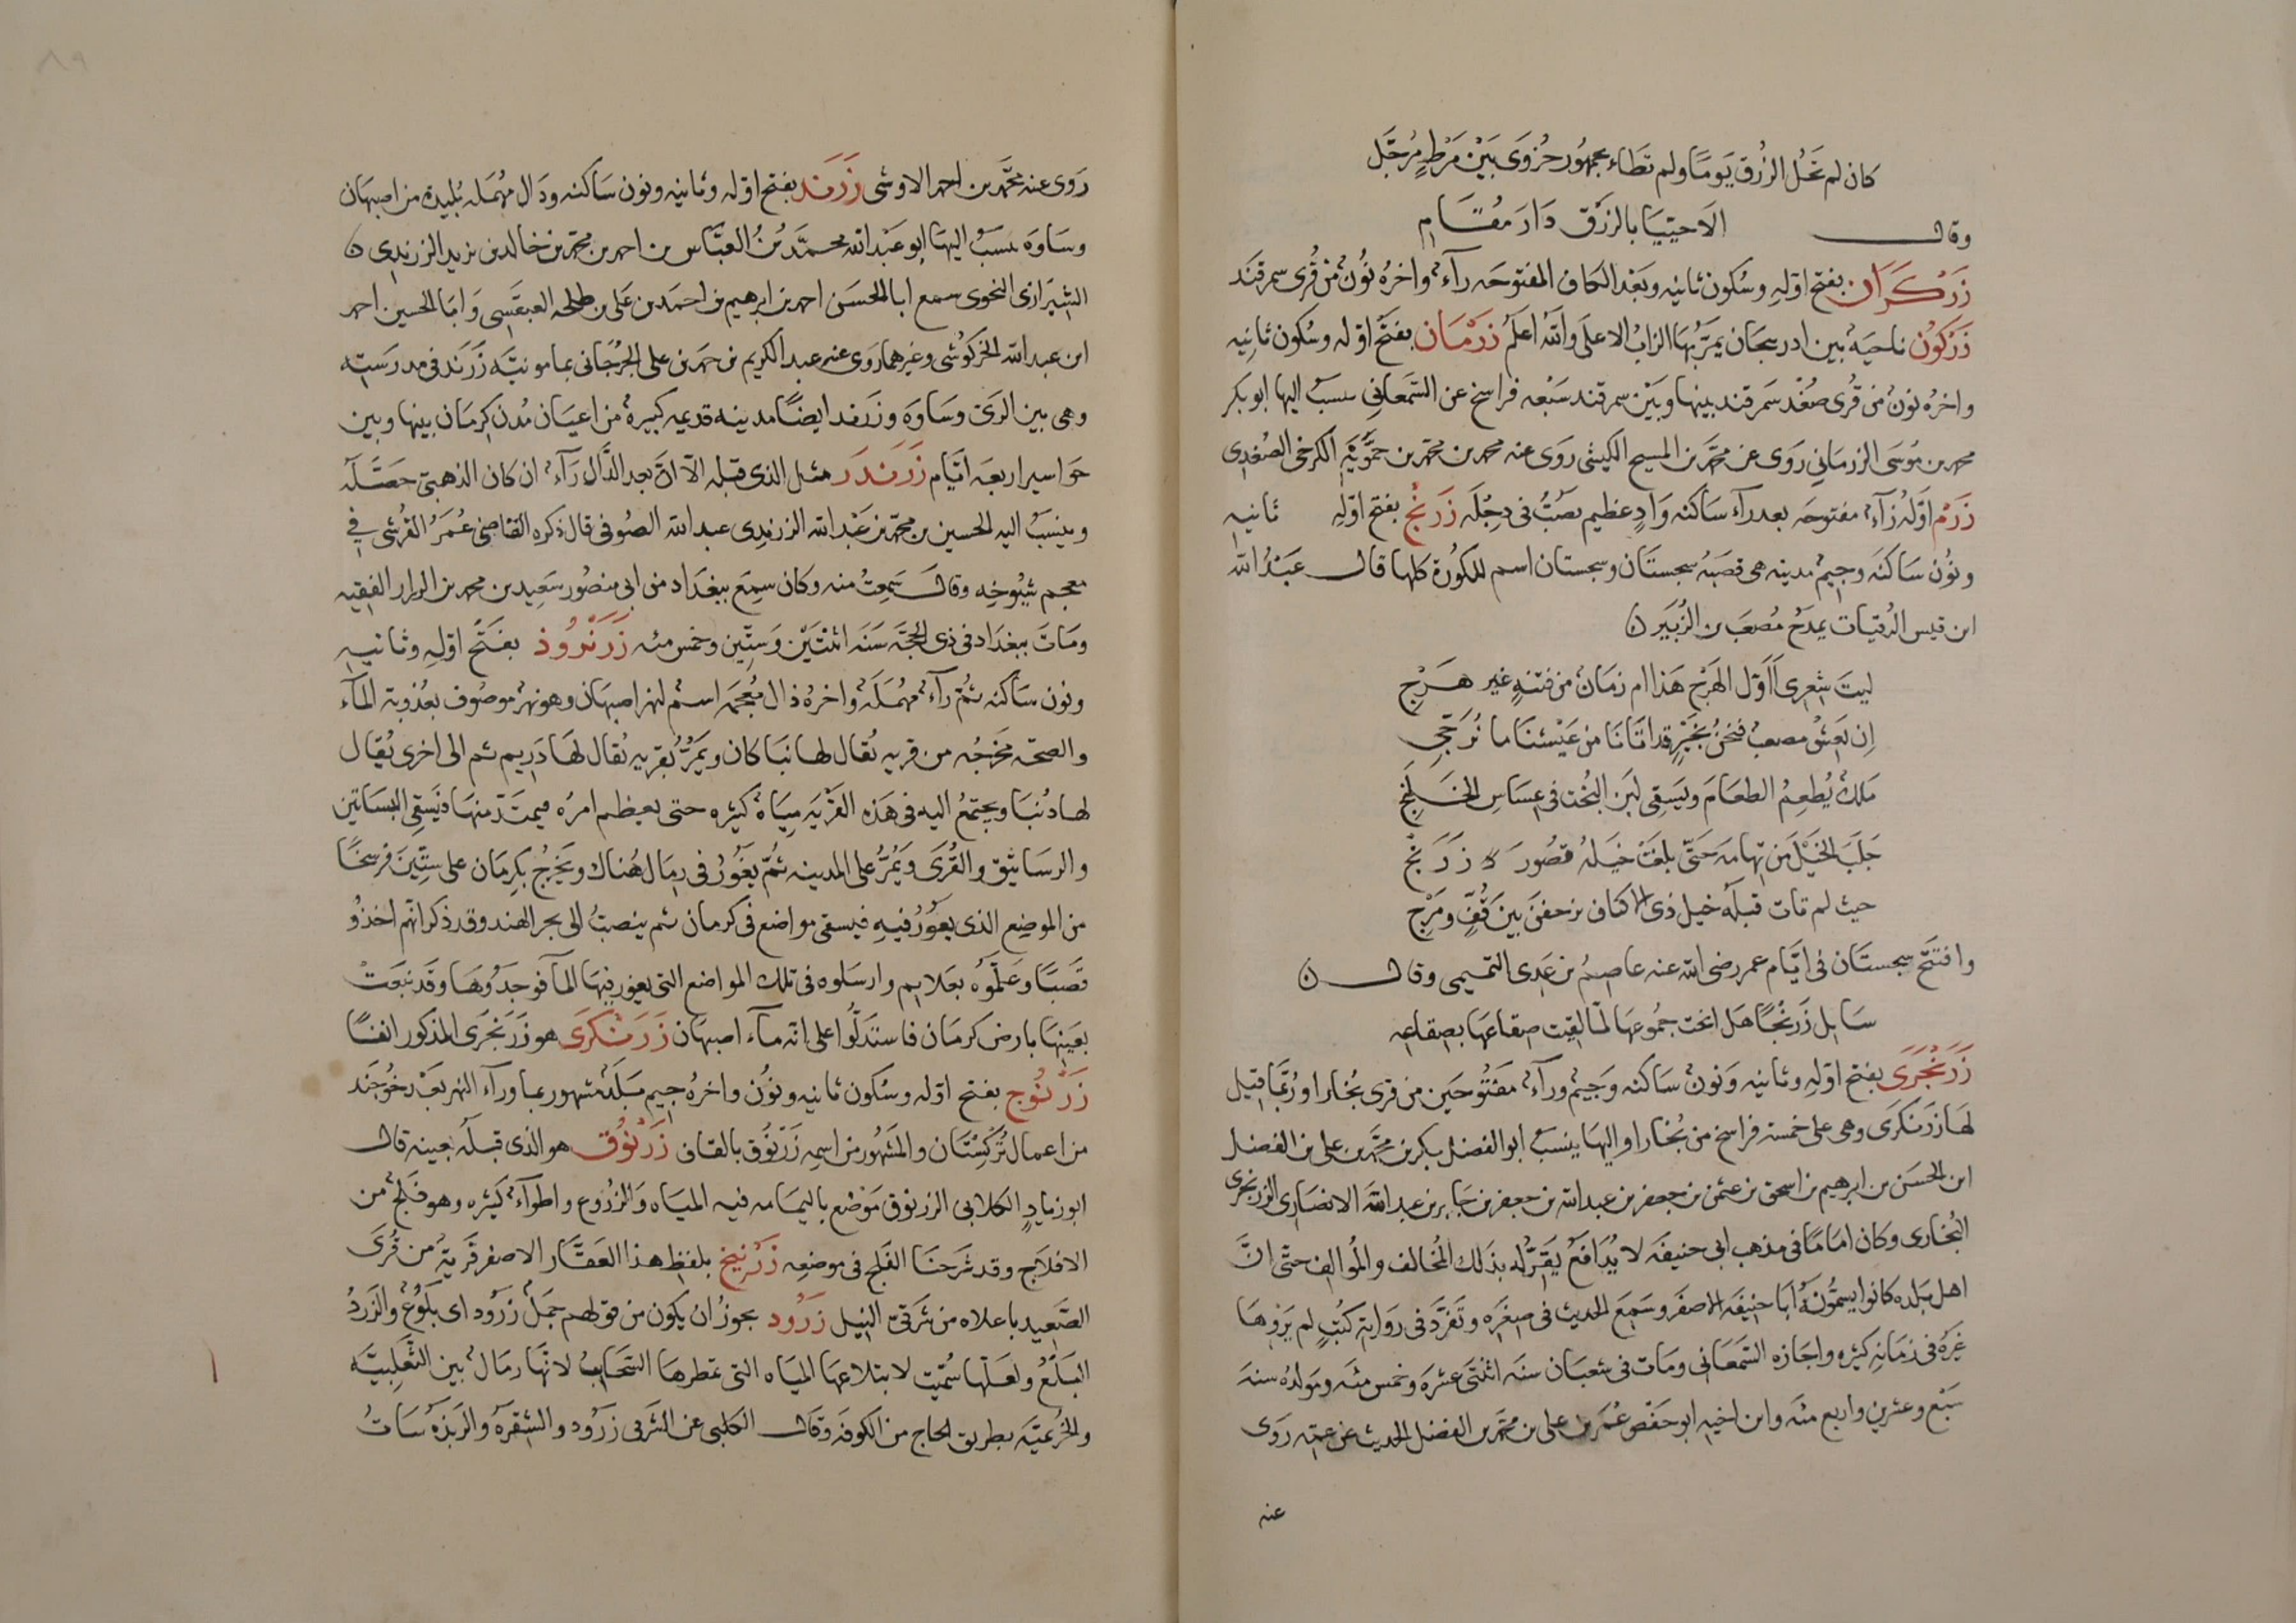 كان لم تحُل الزُرق يَومًا ولم تطاء بجمهُور حُزوَى بَيْن مَرْطٍ مُرجَّل
وقال الا حيّيا بالزُرْق دَارَ مقَام
زَرْكَرَان بفتح اوّلهِ وسُكون ثانيه وبَعْد الكاف المفتوحه رآء واخرهُ نُونٌ من قُرى سمرقند
زَرْكُون ناحيَةٌ بين ادربيجان يمرّ بُهَا الزابُ الاعلى والله اعلم زَرْمَان بفتح اوّله وسُكون ثانِيه
واخرهُ نونٌ من قُرى صُغْد سَمرقند بينها وبَيْن سمرقند سَبْعه فراسخ عن السّمعَاني ينسبُ اليها ابو بكر
محمد بن مُوسَى الزرمَاني روَى عن محمّد بن المسبح الكيشى روَى عنه محمد بن محمّد بن حمّويَة الكرخى الصُغدِى
زَرْم اوّلهُ زآء مفتوحه بعد رآء سَاكنه وَادٍ عظيم يصُبّ فى دجلَه زَرَنْج بفتح اوّلهِ ثانيه
ونُون سَاكنَه وجيمٌ مدينه هى قصَبهُ سجستَان وسجستان اسم للكُورَة كلها قال عَبْدُ الله
ابن قيس الرُقيات يمدَحُ مُصعَب بن الزُبَيْر ن
ليتَ شِعرى أاَوّل الهَرْج هَذا ام زمَانٌ من فتنهٍ غير هَرْج
اِن يَعِشْ مصعبٌ فنحنُ بخَيْرٍ قد اتانَا من عَيْشنَا ما نُرَجّى
مَلكٌ يُطعِمُ الطعَامَ ويَسَقِى لبَن البُخت فى عِسَاسِ الخَلَنْجِ
جَلَبَ الخَيْلَ من تهامَه حَتّى بلغَتْ خيلُه قصُورَ زَرَنْج
حيث لم تات قبلَه خيل ذى الاكتاف يزحفنَ بين قُفٍّ ومَرْج
وافتتح سجستَان فى ايّام عمر رضى الله عنه عاصمُ بن عَدِى التميمى وقال ن
سَايل زَرَنْجًا هَل ابحت جمُوعها لمّا لقيت صقاعهَا بصقاعه
زَرَنْجَرَى بفتح اوّلهِ وثانيه وَنونٌ سَاكنه وَجيمٌ ورآء مفتُوحَين من قرى بُخارا ورُبّما قيل
لهَا زَرَنكَرَى وهى على خمسَة فراسخ من بُخارا واليهَا ينسَبُ ابو الفضل بكر بن محمّد بن على بن الفضل
ابن الحسَن بن ابرهيم بن اسحق بن عثمن بن جعفر بن عبد الله بن جعفر بن جَابر بن عبد الله الانصَارى الزرنجرى
البُخارى وكان امَامًا فى مذهب ابى حنيفَه لا يُدَافَعُ يَقرّ له بذلك المُخالف والمُوالف حتّى انَّ
اهل بَلده كانوا يسمُّونَهُ ابَا حنيفَه الاصغَر وسَمِع الحديث فى صِغَره وتَفرَّدَ فى روَاية كتُبٍ لم يَروِهَا
غيرُه فى زمَانِهِ كثيره واجَازه السّمعَانى ومَات فى شعبَان سنَه اثنتَى عشرَه وخمس مئه ومولدُه سنهَ
سَبْع وعشرين واربع مئه وابن اخيه ابو حفص عُمَر بن على بن محمّد بن الفضل الحديث عن عمّه رَوى
عنه
رَوى عنه محمّد بن احمد الاوشى زَرَند بفتح اوّله وثانيه ونون سَاكنه ودَال مهمَله بُليده من اصبهَان
وسَاوَه ينسَبُ اليهَا ابو عَبْد الله محمَّد بنُ العبَّاس بن احمد بن محمّد بن خالد بن يزيد الزرندى ن
الشيرازى النحوى سمع ابا الحسَن احمد بن ابرهيم بن احمَد بن عَلى بن طلحه العبقَسِى وَابَا الحسين احمد
ابن عبد الله الخركوُشى وغيرهما روى عنه عبد الكريم بن حمد بن على الجُرجَانى بمامونيّة زَرَند فى مدرسَته
وهى بين الرىّ وسَاوَه وزَرَند ايضًا مدينه قديمه كبيرهٌ من اعيَان مُدن كِرمَان بينها وبين
جوَاسير اربعَه ايّام زَرَندَر مثل الذى قبله الّا انّ بعد الدَّال رَآء ان كان الذهبىّ حصَّله
وينسَبُ اليه الحسين بن محمّد بن عَبْد الله الزرندِى عبد الله الصُوفى قال ذكره القاضى عُمَرُ القُرشى فى
معجم شيُوخِه وقال سَمِعتُ منه وكان سمِعَ ببغدَاد من ابى منصُور سَعِيد بن محمد بن الرزاز الفقيه
ومَاتَ ببغدَاد فى ذى الحجّه سَنَه اثنتَيْن وَستّين وخمس مئه زَرَنْرُوذ بفتح اوّلهِ وثانيه
ونون سَاكنه ثمّ رآء مهمَلَه واخرهُ ذال مُعجمَه اسمٌ لنهر اصبهَان وهو نهر موصُوف بعُذوبة المآء
والصحّه مخرجُه من قريه يُقال لهَا بَنَا كان ويَمُرُّ بقريه يُقال لهَا دَرِيم ثم الى اخرى يُقال
لهَا دُنبَا ويجتمعُ اليه فى هَذه القَرْيَه ميَاهٌ كثيره حتى يعظم امرُه فيمتَدّ منهَا ويَسَقِى البسَاتين
والرسَاتيق والقُرَى ويَمُرُّ على المدينه ثمّ يَغُورُ فى رمَال هُناك ويَخرُجُ بكرمَان على ستّينَ فرسخًا
من الموضِع الذى يغُورُ فيهِ فيسقى مواضع فى كرمان ثم ينصبُّ الى بحر الهند وقد ذكر انّهم اخذوُا
قَصَبًا وعَلّموُه بعَلايم وارسَلوه فى تلك المواضع التى يغور فيهَا المآ فوجَدُوهَا وقد نبَعَتْ
بعَينهَا بارض كرمَان فاستدَلُّوا على انّه مآء اصبهَان زَرَنكَرَى هو زرَنجَرى المذكور انفًا
زَرْنُوج بفتح اوّله وسُكون ثانيه ونُون واخرهُ جيم بَلَدٌ مشهور بما ورآء النهر بعْد خُوجَند
من اعمال تُركِستَان والمَشهُور من اسمِه زَرْنُوق بالقاف زَرْنُوق هو الذى قبلَه بعينه قال
ابو زيادٍ الكلابى الزرنوق مَوْضع باليمَامه فيه الميَاه وَالزرُوع واطوآء كثيره وهو فَلَجٌ من
الافلَاج وقد شَرحنَا الفَلَج فى موضعِه زَرْنيخ بلفظِ هذا العَقّار الاصفر قَريةٌ من قُرَى
الصَّعِيد باعلاه من شَرقىّ النِيل زَرُود يجوزُ ان يكون من قولهم جَمَلٌ زَرُود اى بَلوُعٌ والزَردُ
البَلْعُ ولعَلّها سُمّيت لابتلاعِهَا الميَاه التى تمطرهَا السّحَايبُ لانّهَا رمَالٌ بين الثعْلبِيَّه
والخُزيميَّه بطريق الحاج من الكوفه وَقال الكلبى عن الشرقى زَرُود والشِقرَه والرَبذَه بنَاتُ